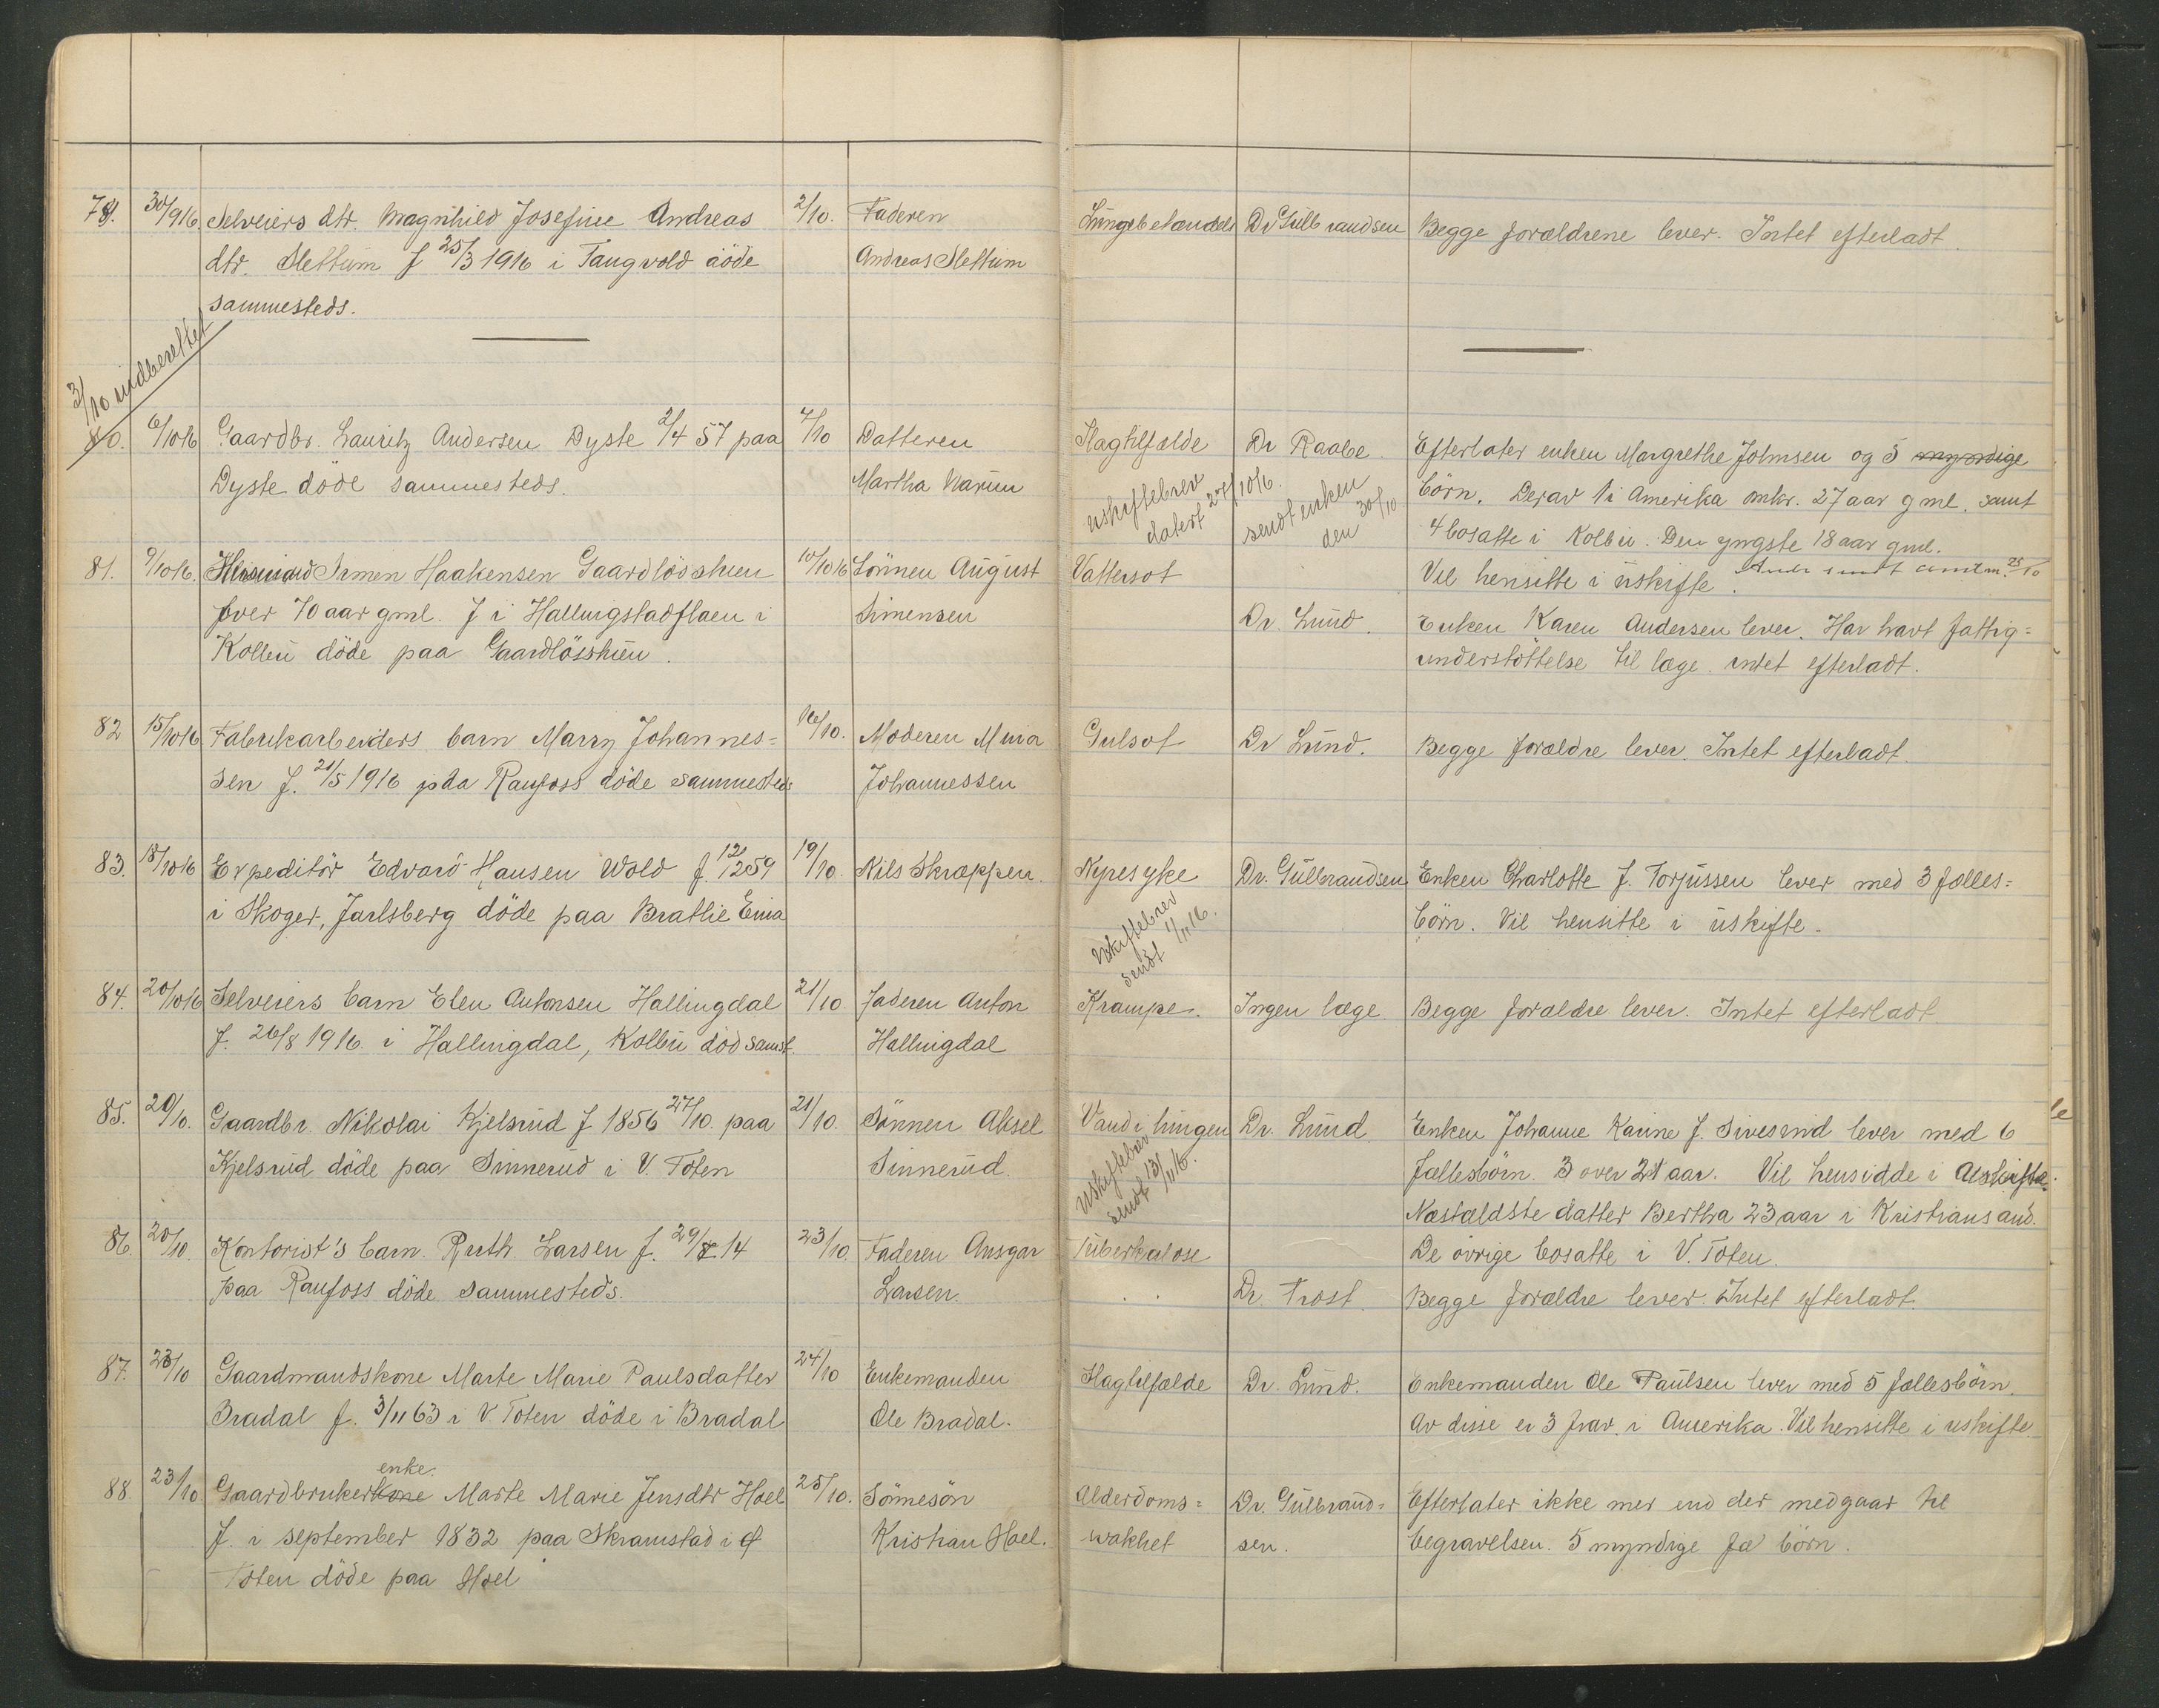 79. 30/9 16. Selveiers dtr. Magnhild Josefine Andreas 2/10. Faderen Dr Gulbrandsen Begge forældrene lever. Intet efterladt.
dtr. Slettum f 25/3 1916 i Taugvold döde Andreas Slettum
sammesteds.
3/10 indberettet
80. 6/10 16 Gaardbr. Lauritz Andersen Dyste 2/4 57 paa 7/10 Datteren Slagtilfælde Dr Raabe. Efterlater enken Margrethe Johnsen og 5 myndige
Dyste döde sammesteds. Martha Narum börn. Derav 1 i Amerika omkr. 27 aar gml. samt
uskiftebrev datert 27/10 16. sendt enken den 30/10
4 bosatte i Kolbu. Den yngste 18 aar gml.
Vil hensitte i uskifte. 25/10
81. 9/10 16. Husmand Simen Haakensen Gaardlösshuen 10/10 16 Sönnen August Vattersot
over 70 aar gml. f i Hallingstadflaen i Simensen Dr. Lund. Enken Karen Andersen lever. Har havt fattig=
Kolbu döde paa Gaardlösshuen. understöttelse til læge. intet efterladt.
82 15/10 16 Fabrikarbeiders barn Marry Johannes= 16/10. Moderen Mina Gulsot Dr Lund. Begge forældre lever. Intet efterladt.
sen f. 21/5 1916 paa Raufoss döde sammesteds Johannessen
83. 18/10 16 Expeditör Edvard Hansen Wold f. 12/12 59 19/10. Nils Skrappen. Nyresyke Dr. Gulbrandsen Enken Charlotte f. Torjussen lever med 3 fælles=
i Skoger, Jarlsberg döde paa Bratlie Eina börn. Vil hensitte i uskifte.
Uskiftebrev sendt 1/11 16.
84. 20/10 16 Selveiers barn Elen Antonsen Hallingdal 21/10 faderen Anton Krampe. Ingen læge Begge forældre lever. Intet efterladt
f. 26/8 1916 i Hallingdal, Kolbu död samst. Hallingdal
85. 20/10. Gaardbr. Nikolai Kjelsrud f 1856 27/10. paa 21/10. Sönnen Aksel Vand i lungen Dr. Lund. Enken Johanne Karine f. Sivesind lever med 6
Kjelsrud döde paa Sinnerud i V. Toten Sinnerud. fællesbörn. 3 over 21 aar. Vil hensidde i Uskifte.
Uskiftebrev sendt 13/11 16.
Næstældste datter Bertha 23 aar i Kristiansand.
De övrige bosatte i V. Toten.
86. 20/10. Kontorist's barn Ruth Larsen f. 29/8 14 23/10. Faderen Ansgar Tuberkulose
paa Raufoss döde sammesteds. Larsen Dr. Trost. Begge forældre lever. Intet efterladt.
87. 23/10 Gaardmandskone Marte Marie Paulsdatter 24/10 Enkemanden Slagtilfælde Dr. Lund. Enkemanden Ole Paulsen lever med 5 fællesbörn.
Bradal f. 3/11 63 i V. Toten döde i Bradal Ole Bradal. Av disse er 3 frav. i Amerika. Vil hensitte i uskifte.
enke.
88 23/10 Gaardbrukerkone Marte Marie Jensdtr Hoel 25/10. Sönnesön Alderdoms= Dr. Gulbrand= Efterlater ikke mer end der medgaar til
f. i september 1832 paa Skramstad i Ø Kristian Hoel. svakhet sen. begravelsen. 5 myndige fæ börn.
Toten döde paa Hoel